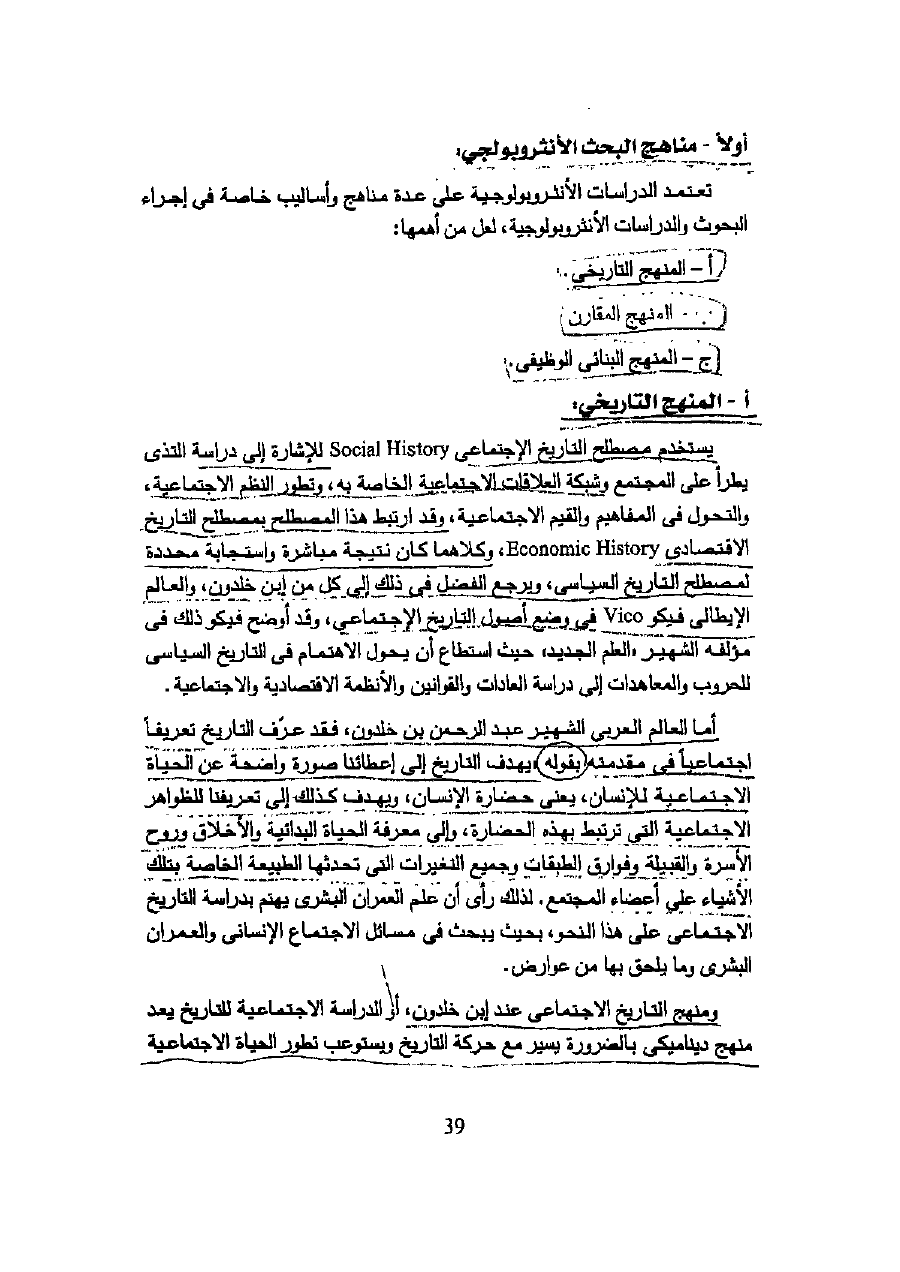 أولاً - مناهج البحث الأنثروبولجي:
تعتمد الدراسات الأنثروبولوجية على عدة مناهج وأساليب خاصة فى إجراء
البحوث والدراسات الأنثروبولوجية، لعل من أهمها:
أ - المنهج التاريخي.
- المنهج المقارن
ج - المنهج البنائى الوظيفى.
أ - المنهج التاريخي:
يستخدم مصطلح التاريخ الإجتماعى Social History للإشارة إلى دراسة التذى
يطرأ على المجتمع وشبكة العلاقات الاجتماعية الخاصة به، وتطور النظم الاجتماعية،
والتحول فى المفاهيم والقيم الاجتماعية، وقد ارتبط هذا المصطلح بمصطلح التاريخ
الاقتصادى Economic History، وكلاهما كان نتيجة مباشرة واستجابة محددة
لمصطلح التاريخ السياسى، ويرجع الفضل فى ذلك إلى كل من إبن خلدون، والعالم
الإيطالى فيكو Vico فى وضع أصول التاريخ الإجتماعي، وقد أوضح فيكو ذلك فى
مؤلفه الشهير «العلم الجديد» حيث استطاع أن يحول الاهتمام فى التاريخ السياسى
للحروب والمعاهدات إلى دراسة العادات والقوانين والأنظمة الاقتصادية والاجتماعية.
أما العالم العربى الشهير عبد الرحمن بن خلدون، فقد عرّف التاريخ تعريفاً
اجتماعياً فى مقدمته بقوله «يهدف التاريخ إلى إعطائنا صورة واضحة عن الحياة
الاجتماعية للإنسان، يعنى حضارة الإنسان، ويهدف كذلك إلى تعريفنا للظواهر
الاجتماعية التى ترتبط بهذه الحضارة، وإلى معرفة الحياة البدائية والأخلاق وروح
الأسرة والقبيلة وفوارق الطبقات وجميع التغيرات التى تحدثها الطبيعة الخاصة بتلك
الأشياء على أعضاء المجتمع. لذلك رأى أن علم العمران البشرى يهتم بدراسة التاريخ
الاجتماعى على هذا النحو، بحيث يبحث فى مسائل الاجتماع الإنسانى والعمران
البشرى وما يلحق بها من عوارض.
ومنهج التاريخ الاجتماعى عند إبن خلدون، أو الدراسة الاجتماعية للتاريخ يعد
منهج ديناميكى بالضرورة يسير مع حركة التاريخ ويستوعب تطور الحياة الاجتماعية
39